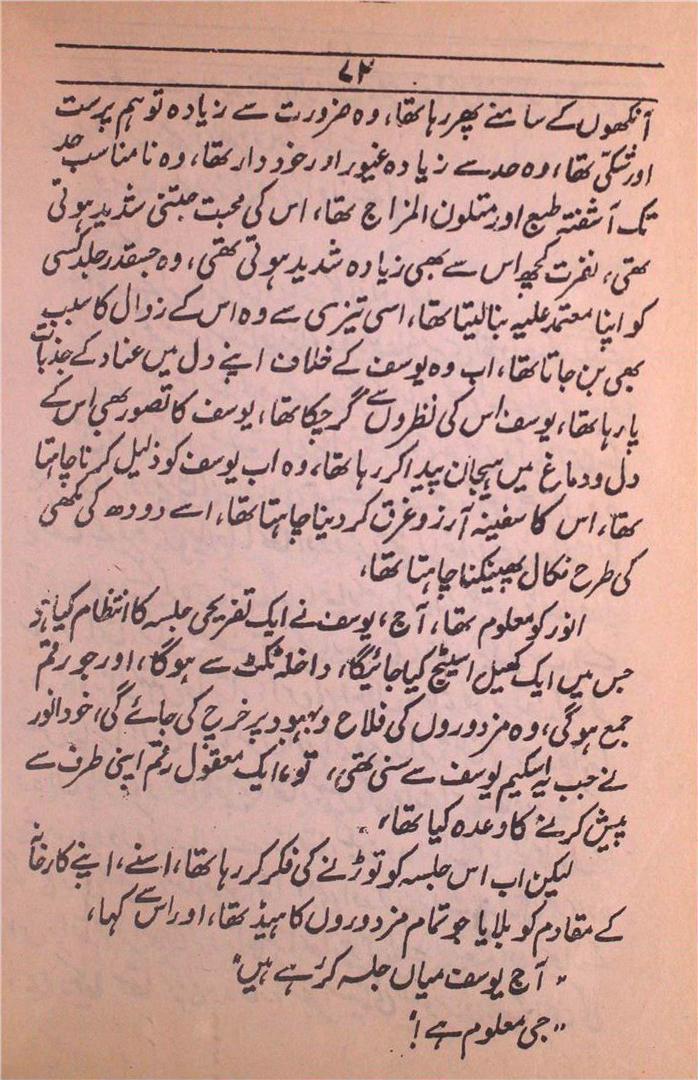 ۷۲
آنکھوں کے سامنے پھر رہا تھا، وہ ضرورت سے زیادہ توہم پرست
اور شکی تھا، وہ حد سے زیادہ غیور اور خود دار تھا، وہ نامناسب حد
تک آشفتہ طبع اور متلون المزاج تھا، اس کی محبت جتنی شدید ہوتی
تھی، نفرت کچھ اس سے بھی زیادہ شدید ہوتی تھی، وہ جسقدر جلد کسی
کو اپنا معتمد علیہ بنا لیتا تھا، اسی تیزی سے وہ اس کے زوال کا سبب
بھی بن جاتا تھا، اب وہ یوسف کے خلاف اپنے دل میں عناد کے جذبات
پا رہا تھا، یوسف اس کی نظروں سے گر چکا تھا، یوسف کا تصور بھی اس کے
دل و دماغ میں ہیجان پیدا کر رہا تھا، وہ اب یوسف کو ذلیل کرنا چاہتا
تھا، اس کا سفینہ آرزو غرق کر دینا چاہتا تھا، اسے دودھ کی مکھی
کی طرح نکال پھینکنا چاہتا تھا،
انور کو معلوم تھا، آج، یوسف نے ایک تفریحی جلسہ کا انتظام کیا ہے
جس میں ایک کھیل اسٹیج کیا جائیگا، داخلہ ٹکٹ سے ہوگا، اور جو رقم
جمع ہوگی، وہ مزدوروں کی فلاح و بہبود پر خرچ کی جائے گی، خود انور
نے جب یہ اسکیم یوسف سے سنی تھی، تو، ایک معقول رقم اپنی طرف سے
پیش کرنے کا وعدہ کیا تھا،
لیکن اب اس جلسہ کو توڑنے کی فکر کر رہا تھا، اسنے، اپنے کارخانہ
کے مقادم کو بلایا جو تمام مزدوروں کا ہیڈ تھا، اور اس سے کہا،
"آج یوسف میاں جلسہ کر رہے ہیں"
"جی معلوم ہے!"